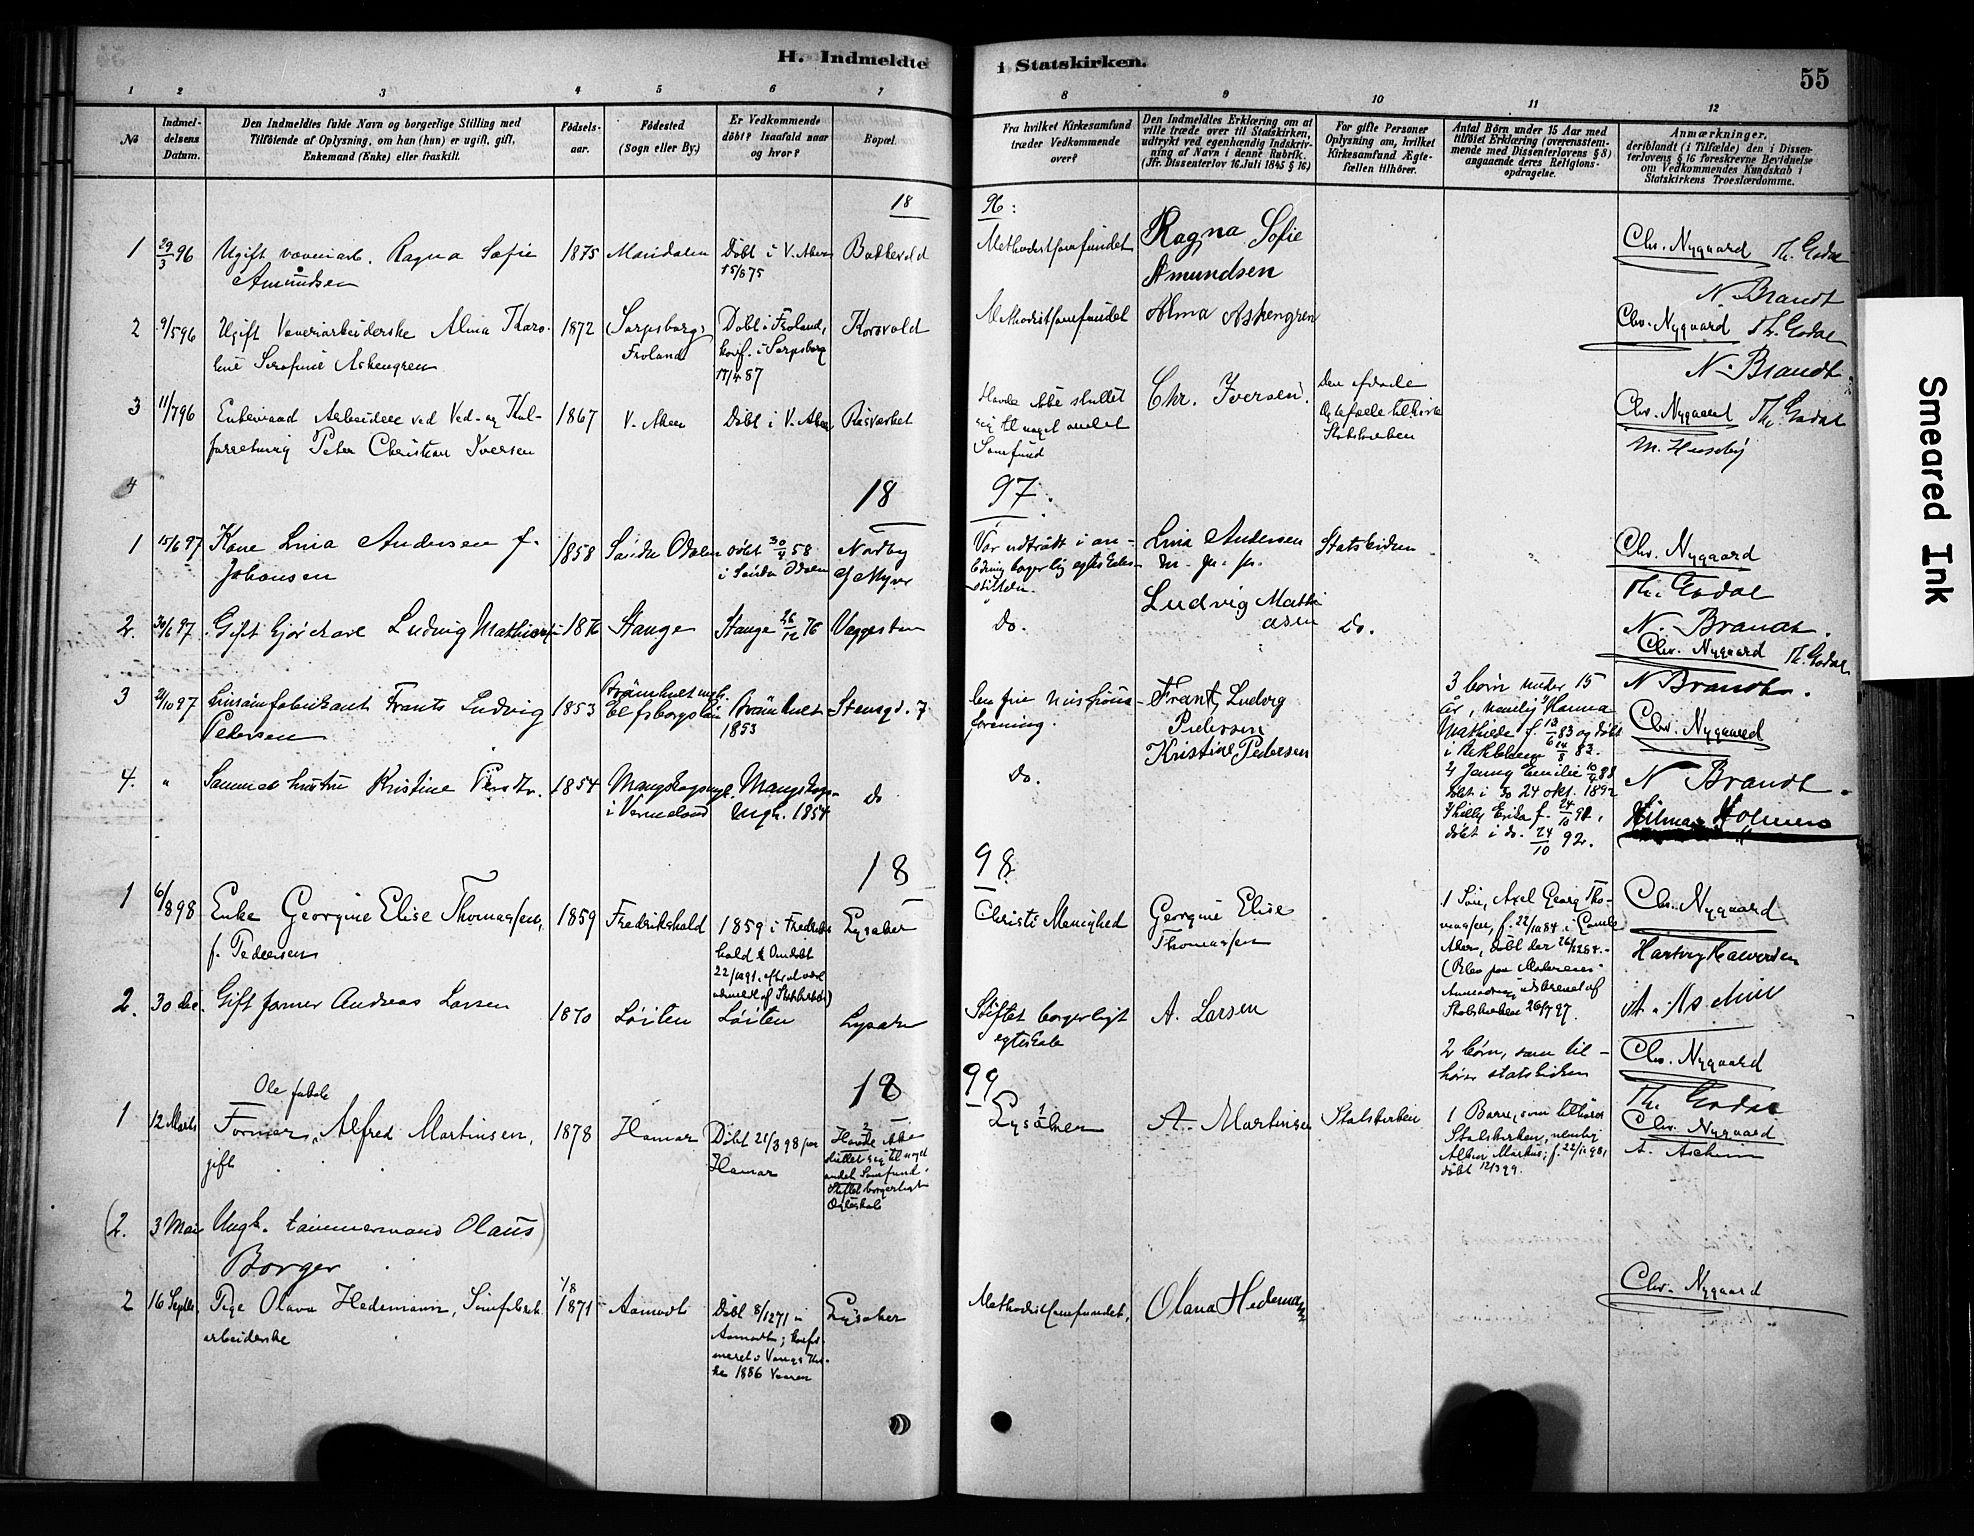 H. Indmeldte i Statskirken.
55
1 2 3 4 5 6 7 8 9 10 11 12
No
Indmel-
delsens
Datum.
Den Indmeldtes fulde Navn og borgerlige Stilling med
Tilføiende af Oplysning, om han (hun) er ugift, gift,
Enkemand (Enke) eller fraskilt.
Fødsels-
aar.
Fødested
(Sogn eller By.)
Er Vedkommende
døbt? Isaafald naar
og hvor?
Bopæl.
Fra hvilket Kirkesamfund
træder Vedkommende
over?
Den Indmeldtes Erklæring om at
ville træde over til Statskirken,
udtrykt ved egenhændig Indskriv-
ning af Navn i denne Rubrik.
(Jfr. Dissenterlov 16 Juli 1845 § 16)
For gifte Personer
Oplysning om, hvilket
Kirkesamfund Ægte-
fællen tilhører.
Antal Børn under 15 Aar med
tilføiet Erklæring (overensstem-
mende med Dissenterlovens § 8)
angaaende deres Religions-
opdragelse.
Anmærkninger,
deriblandt (i Tilfælde) den i Dissen-
terlovens § 16 foreskrevne Bevidnelse
om Vedkommendes Kundskab i
Statskirkens Troeslærdomme.
18 96:
1 29/3 96 Ugift væveriarb. Ragna Sofie
Amundsen
1875 Maridalen
Døbt i V. Aker
15/8 75
Bakkevold
Methodistsamfundet
Ragna Sofie
Amundsen
Chr. Nygaard Th. Godal
N. Brandt
2 9/5 96 Ugift Væveriarbeiderske Alma Karo-
line Serafine Askengren
1872 Sarpsborg,
Froland
Døbt i Froland,
konf. i Sarpsborg
17/4 87
Korsvold
Methodistsamfundet
Alma Askengren
Chr. Nygaard Th. Godal
N. Brandt
3 11/7 96 Enkemand Arbeider ved Ved- og Kul-
forretning Peter Christian Iversen
1867 V. Aker Døbt i V. Aker
Havde ikke sluttet
sig til noget andet
Samfund
Chr. Iversen.
Den afdøde
Ægtefælle tilhørte
Statskirken
Chr. Nygaard Th. Godal
M. Huseby
4
18 97.
1 15/6 97 Kone Lina Andersen f.
Johansen
1858 Søndre Odalen
døbt 30/4 58
i Søndre Odalen
Nordby
Var udtrådt i an-
ledning borgerlig egteskabs-
stiftelse.
Lina Andersen
m. p. p.
Statskirken
Chr. Nygaard
Th. Godal
N. Brandt.
2. 30/6 97 Gift kjørekarl Ludvig Mathiasen
1876 Stange Stange 26/12 76
Do.
Ludvig Mathi
asen
Do.
Chr. Nygaard Th. Godal
N Brandt.
3 21/10 97 fabrikant Frants Ludvig
Petersen
1853
1853
Den frie Missions-
forening.
Frantz Ludvig
Pedersen
3 børn under 15
år, nemlig Hanna
Mathilde f. 13/6 83 og døbt
Chr. Nygaard
4. " Sammes hustru Kristine
1854
i Vermeland
1854
Do
Do.
Kristine Pedersen
døbt i do 24 okt. 1892
døbt i do. 24/10 92.
N Brandt.
Hilmar Holmens
18 98.
1 6/8 98 Enke Georgine Elise Thomassen,
f. Pedersen
1859 Fredrikshald
1859 i Fredriks-
hald
Lysaker
Christi Menighed
Georgine Elise
Thomassen
1 Søn, Axel Georg Tho-
massen, f. 22/10 84 i Gamle
Aker, døbt der 26/12 84.
Statskirken 26/7 97.
Chr. Nygaard
Hartvig Halvorsen
A. Aschim
2. 30 Dec. Gift former Andreas Larsen
1870 Løiten Løiten Lysaker
Stiftet borgerligt
egteskab
A. Larsen
2 børn, som til-
hører statskirken
Chr. Nygaard
Th. Godal
18 99
1 12 Marts Former, Ole Alfred Martinsen,
gift
1878 Hamar
Døbt 21/3 98 paa
Hamar
Havde ikke
sluttet sig til noget
andet Samfund.
Stiftet borgerligt
Ægteskab
Lysaker
A. Martinsen Statskirken
1 Barn, som tilhører
Statskirken, nemlig
døbt 12/3 99.
Chr. Nygaard
A. Aschim
(2. 3 Mai Ungk. tømmermand Olaus)
Borger
2 16 Septbr. Pige Olava Hedemann,
arbeiderske
1/8
1871 Aamodt
Døbt 8/12 71 i
Aamodt; konfir-
meret i Vangs Kir-
ke 1886 Vaaren
Lysaker
Methodistsamfundet,
Olava Hedemann
Chr. Nygaard
Smeared Ink